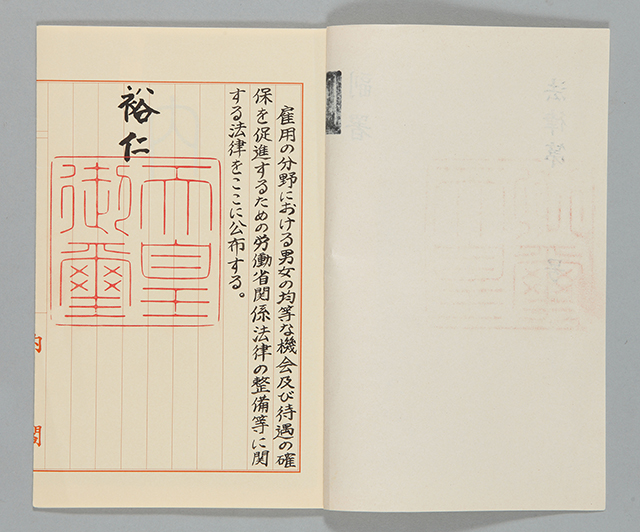 雇用の分野における男女の均等な機会及び待遇の確
保を促進するための労働省関係法律の整備等に関
する法律をここに公布する。
裕仁
天皇
御璽
内閣